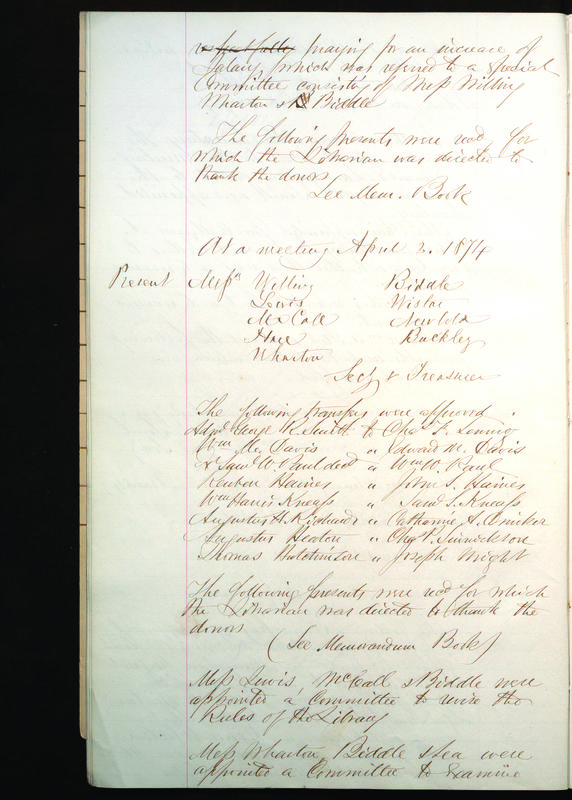 respectfully praying for an increase of
Salary, which was referred to a Special
Committee consisting of Mess Willing
Wharton & Biddle
The following presents were recd for
which the Librarian was directed to
thank the donors
See Mem. Book
At a meeting April 2. 1874
Present Messrs Willing Biddle
Lewis Wistar
McCall Newbold
Hare Buckley
Wharton
Secy & Treasurer
The following transfers were approved.
George R Smith to Chas. F.
Wm M. Davis " Edward M. Davis
Saml W. Paul decd " Wm W. Paul
Reuben Haines " John S. Haines
Wm Harris Kneass " Saml S. Kneass
Augustus H. " Catharine A.
Augustus Heaton " Chas P. Sinnickson
Thomas Hutchinson " Joseph Wright
The following presents were recd for which
the Librarian was directed to thank the
donors
(See Memorandum Book)
Mess Lewis, McCall & Biddle were
appointed a Committee to revise the
Rules of the Library
Mess Wharton, Biddle & Lea were
appointed a Committee to Examine